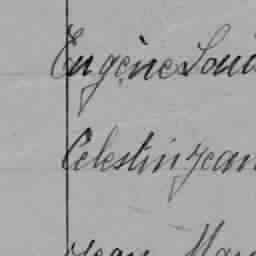 Eugène Loui
Celestin Jean
Jean Mar